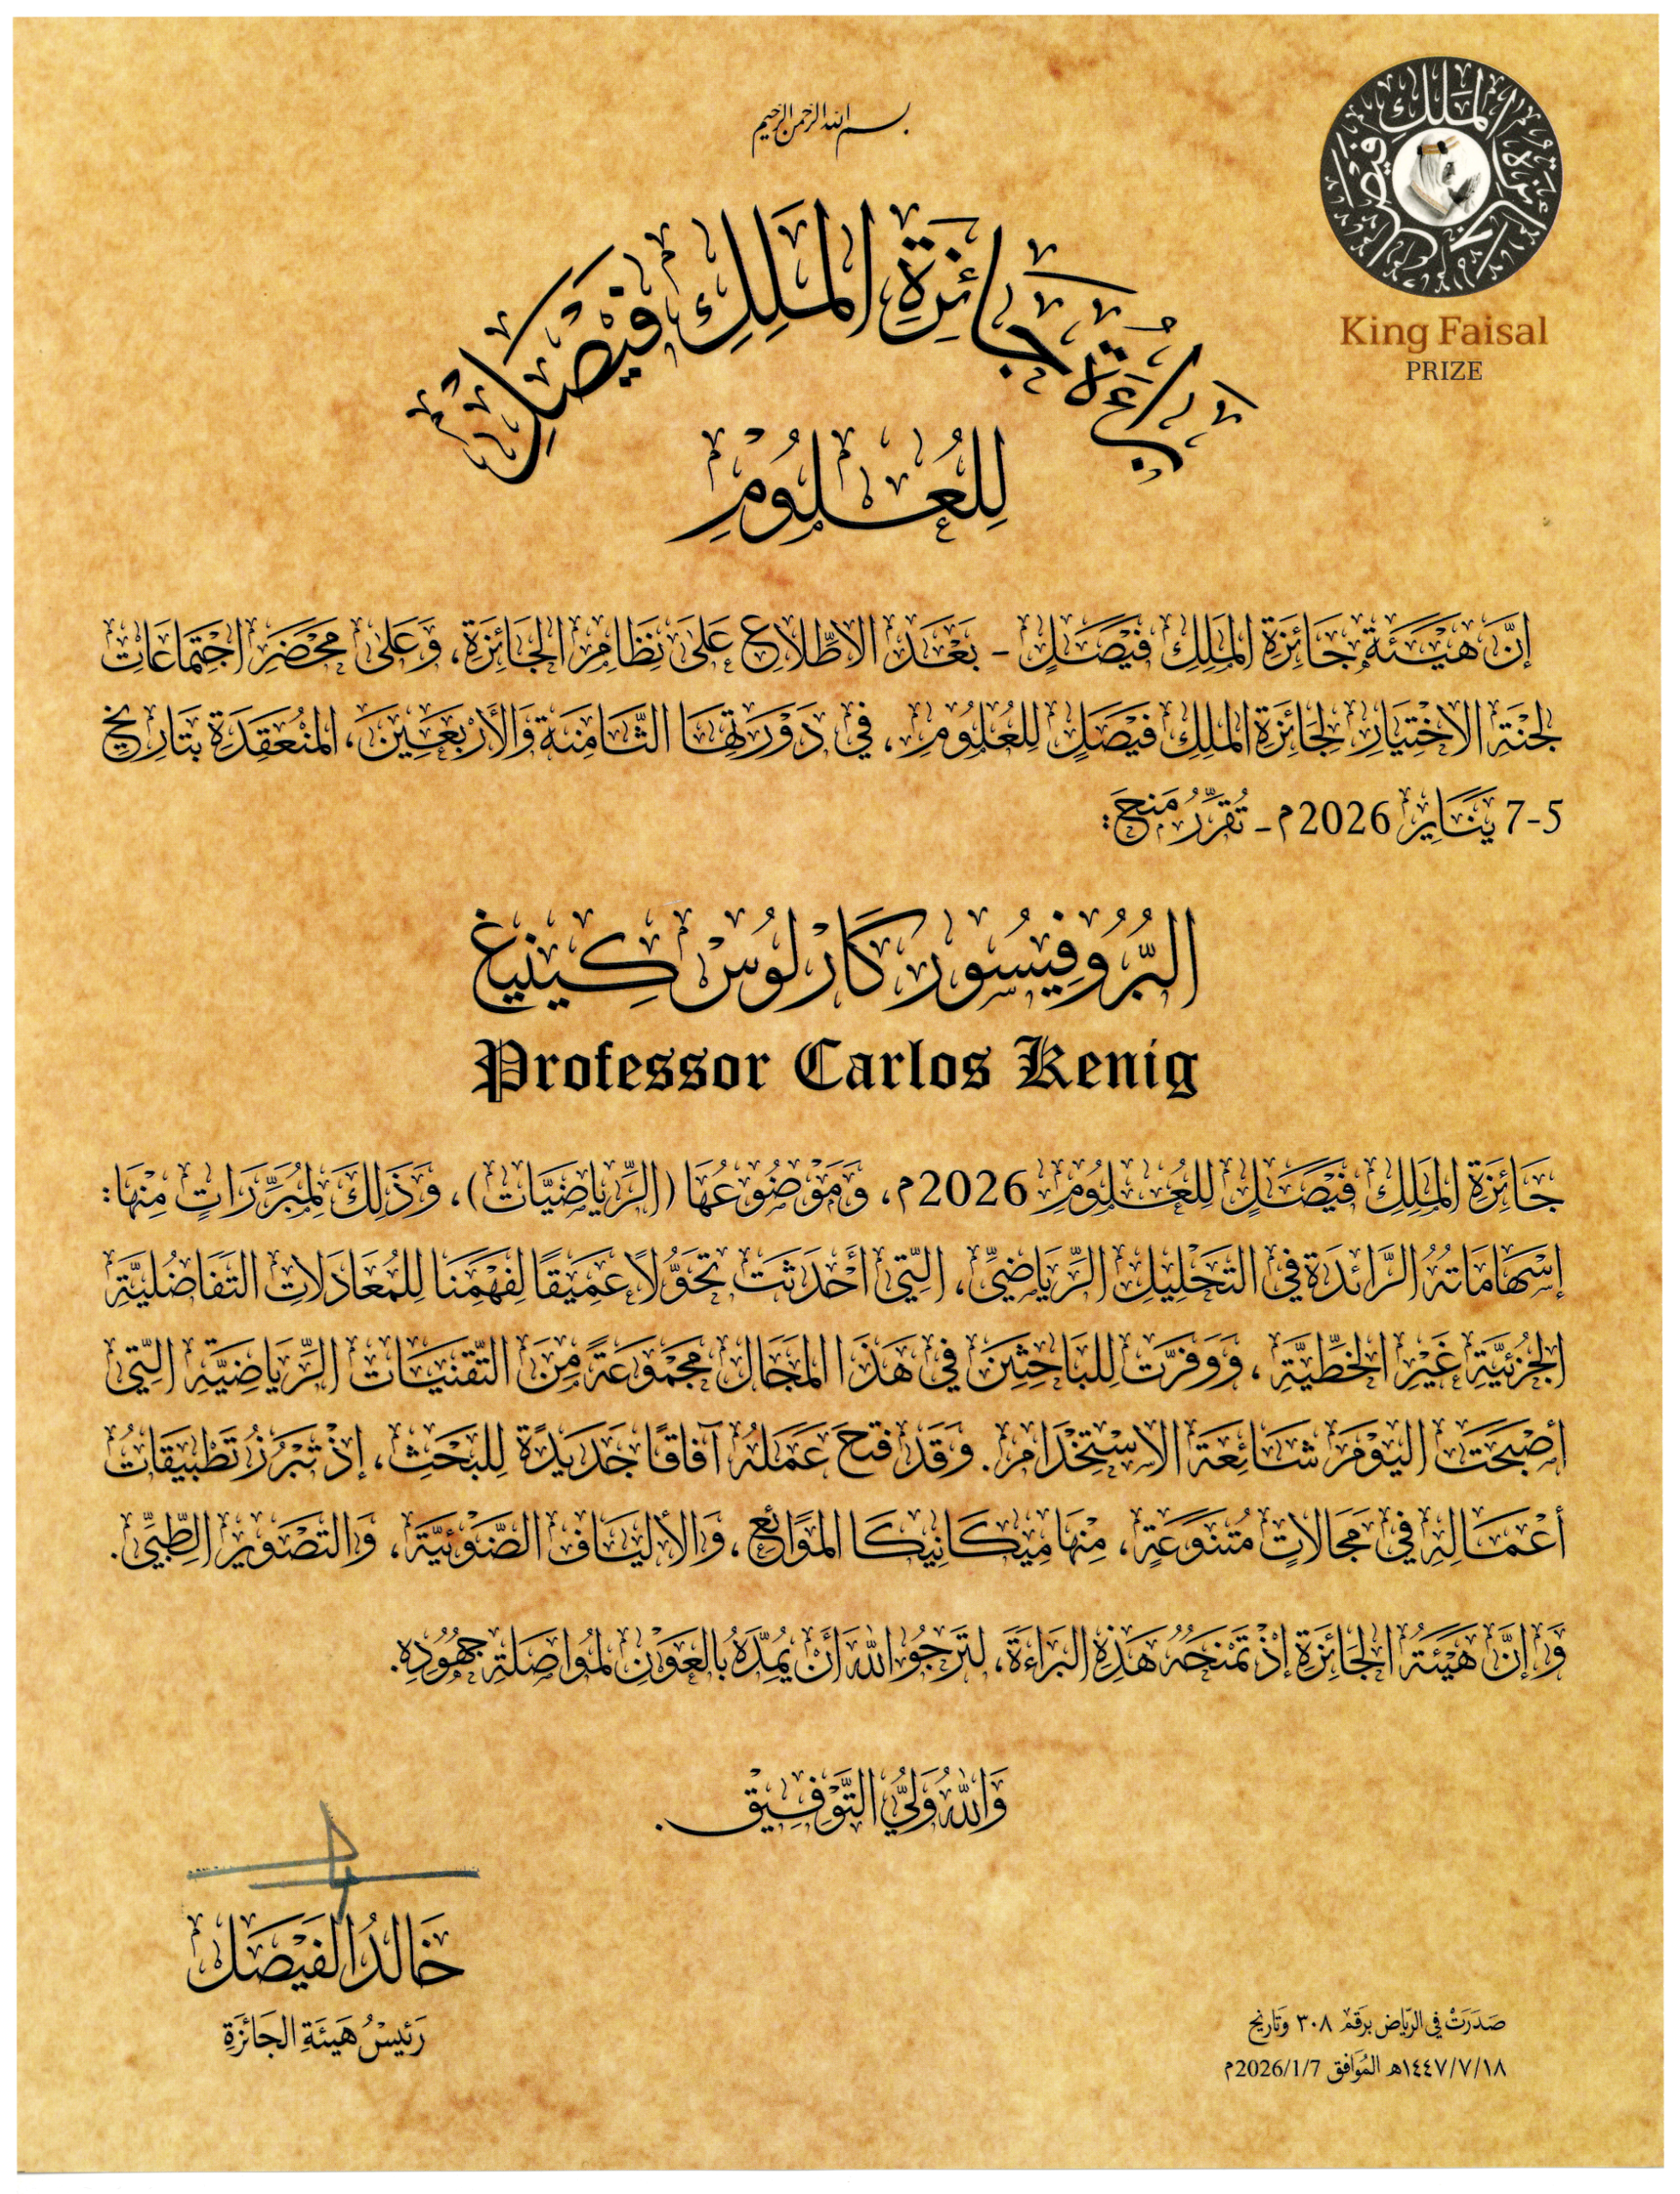 بسم الله الرحمن الرحيم
جائزة الملك فيصل العالمية
King Faisal
PRIZE
بَرَاءَةُ جَائِزَةِ المَلِكِ فَيْصَلٍ
لِلْعُلُومِ
إنَّ هَيْئَةَ جَائِزَةِ المَلِكِ فَيْصَلٍ - بَعْدَ الاطِّلاعِ عَلَى نِظَامِ الجَائِزَةِ، وَعَلَى مَحْضَرِ اجْتِمَاعَاتِ
لَجْنَةِ الاخْتِيَارِ لِجَائِزَةِ المَلِكِ فَيْصَلٍ لِلْعُلُومِ، في دَوْرَتِهَا الثَّامِنَةِ وَالأَرْبَعِينَ، المُنْعَقِدَةِ بِتَارِيخِ
5-7 يَنَايِرَ 2026م - تُقَرِّرُ مَنْحَ:
البُّرُوفِيسُور كَارْلُوسْ كِينِيغ
Professor Carlos Kenig
جَائِزَةَ المَلِكِ فَيْصَلٍ لِلْعُلُومِ 2026م، وَمَوْضُوعُهَا (الرِّيَاضِيَّات)، وَذَلِكَ لِمُبَرِّرَاتٍ مِنْهَا:
إسْهَامَاتُهُ الرَّائِدَةُ في التَّحْلِيلِ الرِّيَاضِيِّ، الَّتِي أَحْدَثَتْ تَحَوُّلًا عَمِيقًا لِفَهْمِنَا لِلْمُعَادَلَاتِ التَّفَاضُلِيَّةِ
الجُزْئِيَّةِ غَيْرِ الخَطِّيَّةِ، وَوَفَّرَتْ لِلْبَاحِثِينَ في هَذَا المَجَالِ مَجْمُوعَةً مِنَ التِّقْنِيَاتِ الرِّيَاضِيَّةِ الَّتِي
أَصْبَحَتْ اليَوْمَ شَائِعَةَ الاسْتِخْدَامِ. وَقَدْ فَتَحَ عَمَلُهُ آفَاقًا جَدِيدَةً لِلْبَحْثِ، إذْ تَبْرُزُ تَطْبِيقَاتُ
أَعْمَالِهِ في مَجَالَاتٍ مُتَنَوِّعَةٍ، مِنْهَا مِيكَانِيكَا المَوَائِعِ، وَالأَلْيَافِ الضَّوْئِيَّةِ، وَالتَّصْوِيرِ الطِّبِّيِّ.
وَإِنَّ هَيْئَةَ الجَائِزَةِ إذْ تَمْنَحُهُ هَذِهِ البَرَاءَةَ، لَتَرْجُو اللهَ أَنْ يُمِدَّهُ بِالعَوْنِ لِمُوَاصَلَةِ جُهُودِهِ.
وَاللهُ وَلِيُّ التَّوْفِيقِ.
خَالِدُ الفَيْصَل
رَئِيسُ هَيْئَةِ الجَائِزَةِ
صَدَرَتْ في الرِّيَاض بِرَقْم ٣٠٨ وَتَارِيخ
١٤٤٧/٧/١٨هـ المُوَافِق 2026/1/7م